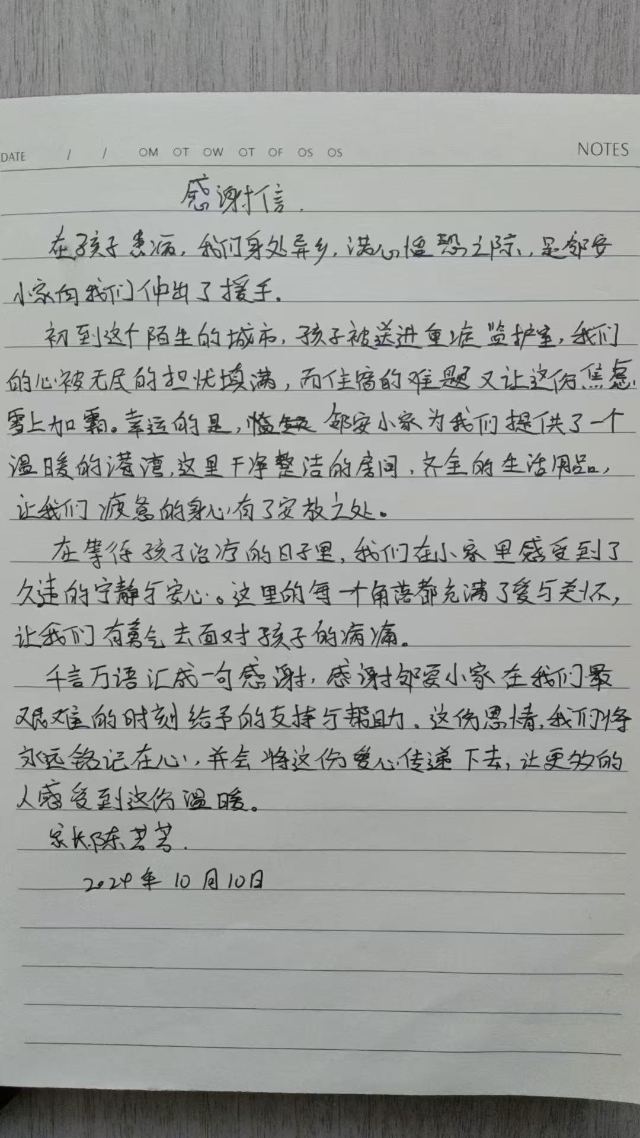 DATE / / OM OT OW OT OF OS OS NOTES
感谢信.
在孩子患病,我们身处异乡,满心惶恐之际,是邻安
小家向我们伸出了援手.
初到这个陌生的城市,孩子被送进重症监护室,我们
的心被无尽的担忧填满,而住宿的难题又让这份焦虑
雪上加霜。幸运的是,邻安小家为我们提供了一个
温暖的港湾,这里干净整洁的房间,齐全的生活用品,
让我们疲惫的身心有了安放之处。
在等待孩子治疗的日子里,我们在小家里感受到了
久违的宁静与安心。这里的每一个角落都充满了爱与关怀,
让我们有勇气去面对孩子的病痛。
千言万语汇成一句感谢,感谢邻爱小家在我们最
艰难的时刻给予的支持与帮助.这份恩情,我们将
永远铭记在心,并会将这份爱心传递下去,让更多的
人感受到这份温暖。
家长:陈
2024年10月10日